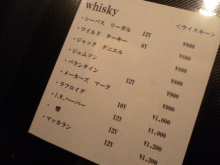 whisky
<ウイスキー>
・シーバス リーガル 12Y ¥800
・ワイルド ターキー 8Y ¥800
・ジャック ダニエル ¥800
・ジェムソン ¥800
・バランタイン 12Y ¥800
・メーカーズ マーク ¥900
・ラフロイグ 10Y ¥900
・I.W.ハーパー 12Y ¥1,000
・響 12Y ¥1,200
・マッカラン 12Y ¥1,200